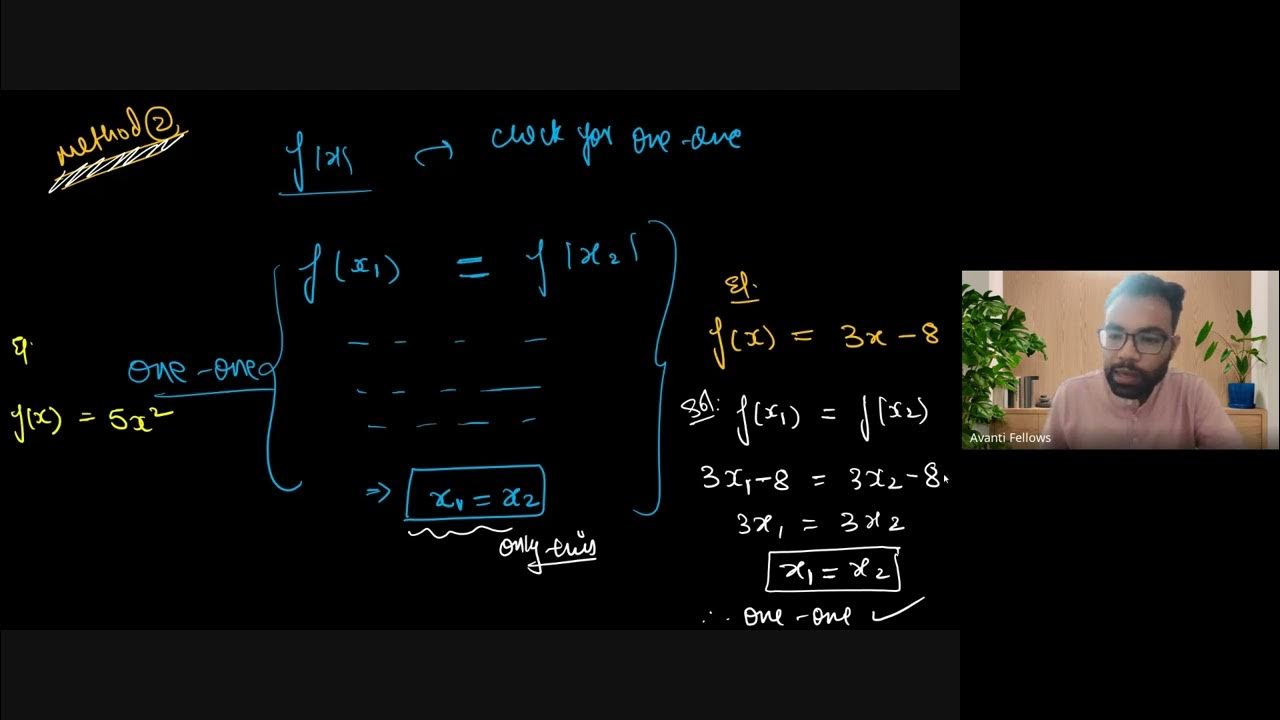 method ②
f(x) → check for one-one
f(x₁) = f(x₂)
one-one
⇒ x₁ = x₂
only this
Eg.
f(x) = 5x²
Eg.
f(x) = 3x - 8
Sol: f(x₁) = f(x₂)
3x₁ - 8 = 3x₂ - 8
3x₁ = 3x₂
x₁ = x₂
∴ one-one ✓
Avanti Fellows